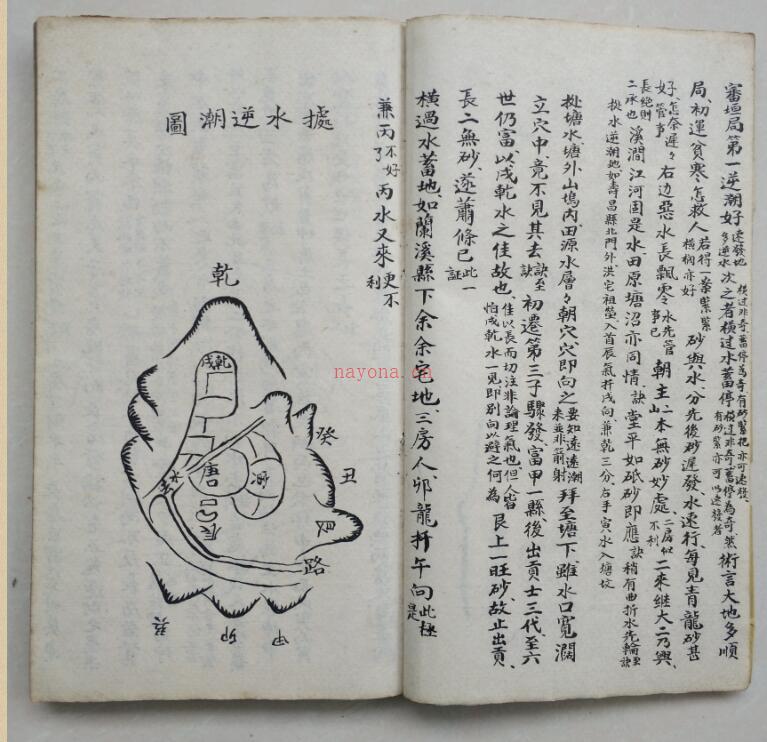 審垣局第一逆潮好速發地多逆水次之者橫过水蓄停橫过非奇蓄停為奇然有砂緊亦可以速發者術言大地多順
橫过非奇蓄停為奇有砂緊把亦可速發
局初運貧寒怎救人若得一案緊緊橫栏亦好砂與水分先後砂遲發水速行每見青龍砂甚
好怎奈遲々右边惡水長飄零水先管事已朝主山二本無砂妙處二房似不利二來継大二乃興
好管事長絕則二承也溪澗江河固是水田原塘沼亦同情訣堂平如砥砂即應訣稍有曲折水先輪
挨水逆潮地如壽昌縣北門外洪宅祖塋入首辰氣扦戌向兼乾三分右手寅水入塘坟
挨塘水塘外山塢內田源水層々朝穴穴即向之要知遠遠潮來並非箭射拜至塘下雖水口寬濶
立穴中竟不見其去訣至訣初遷第三子驟發富甲一縣後出貢士三代至六
世仍富以戌乾水之佳故也佳以長而切注非論理氣也但人皆怕戌乾水一見即别向以避之何為艮上一旺砂故止出貢
長二無砂遂蕭條已此一証
橫過水蓄地如蘭溪縣下余余宅地三房人卯龍扦午向此極是
兼丙不好了丙水又來更不利
據水逆潮圖
乾
戌乾
癸
丑
唐
辰
路
甲
卯
nayona.cn